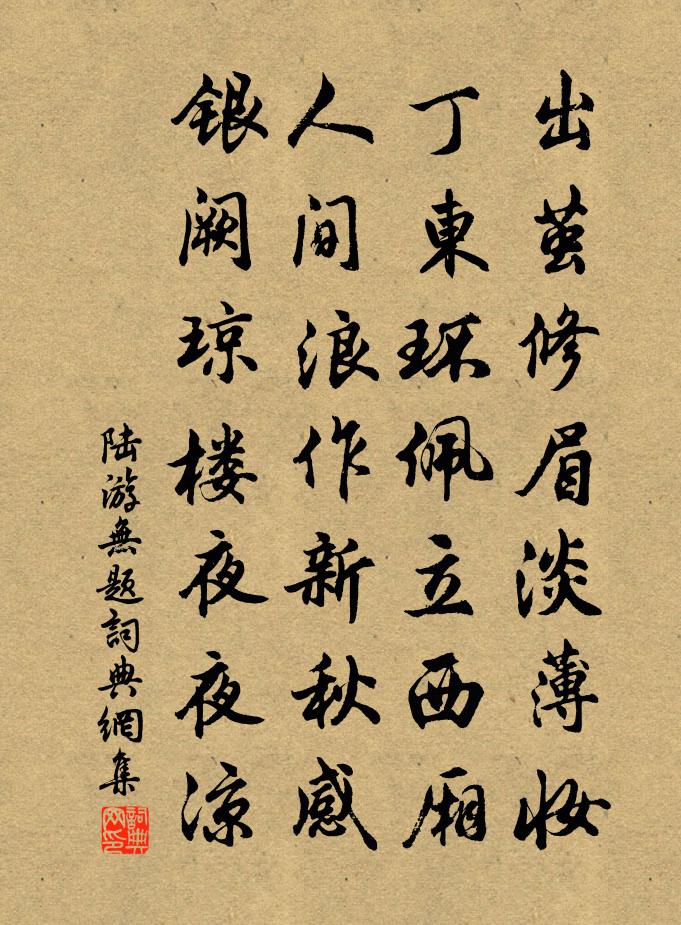 出茧修眉淡薄妆
丁東环佩立西厢
人间浪作新秋感
银阙琼楼夜夜凉
陆游無题詞典網集
詞典网印